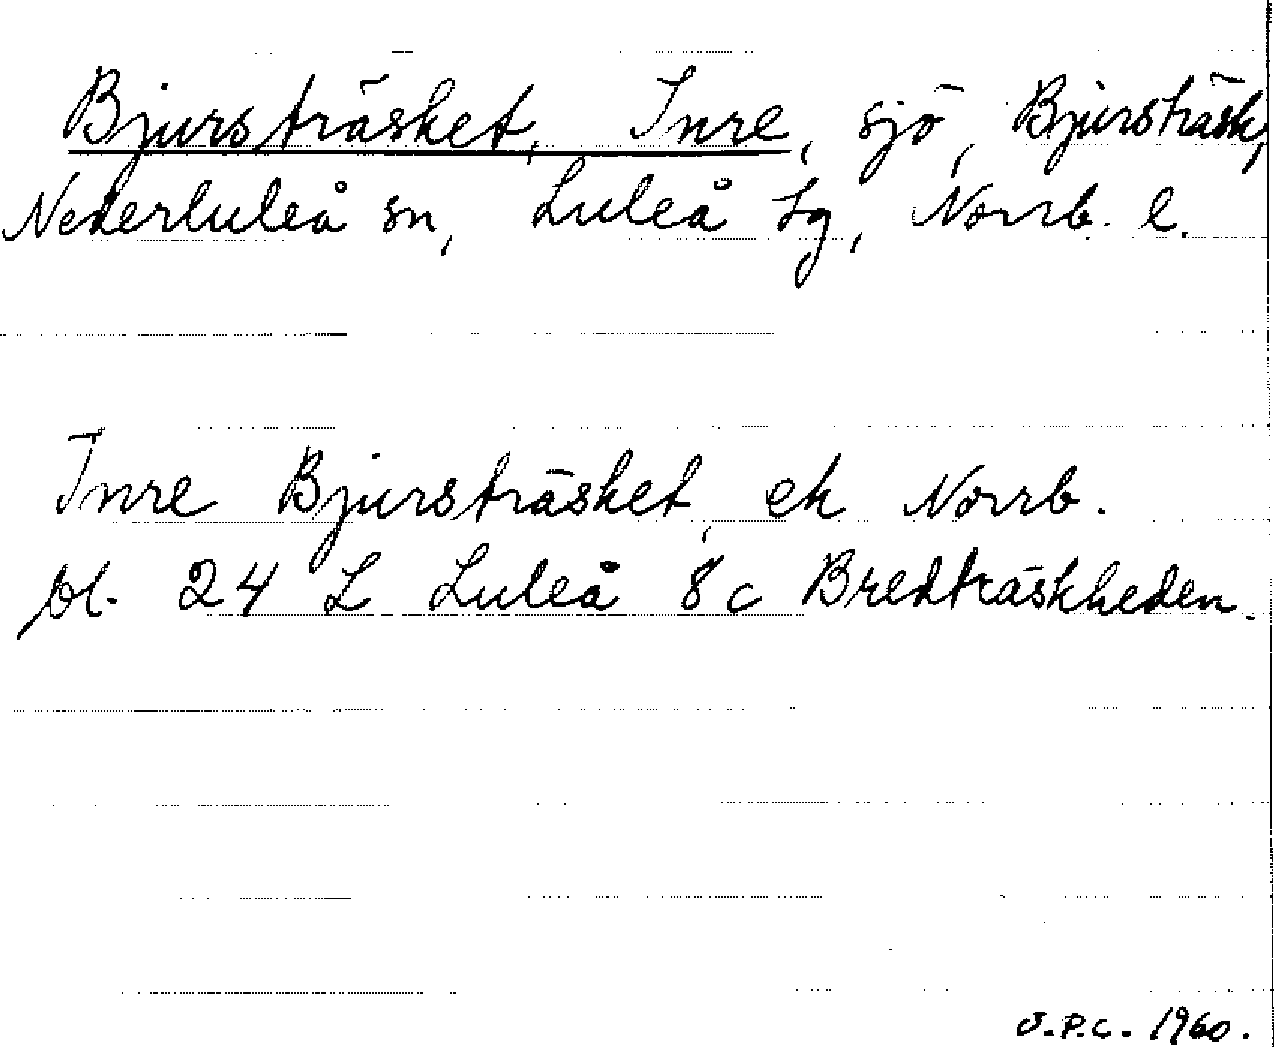 Bjursträsket, Inre, sjö, Bjursträsk,
Nederluleå sn, Luleå tg, Norrb. l.
Inre Bjursträsket, ek Norrb.
bl. 24 L Luleå 8c Bredträskheden.
J.P.C. 1960.